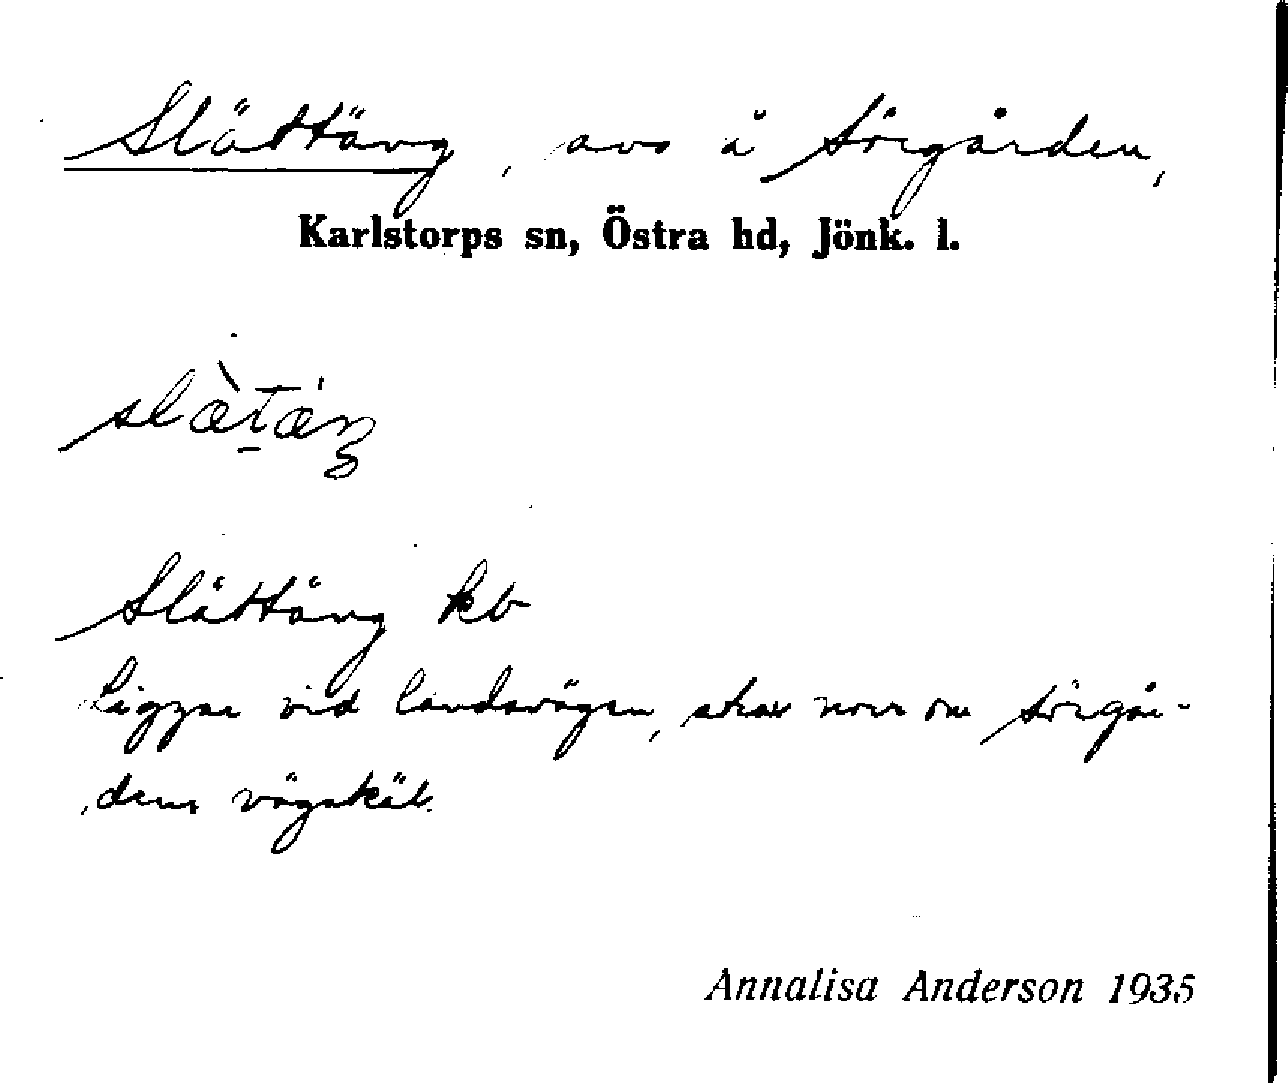 Slättäng, avs å Sörgården,
Karlstorps sn, Östra hd, Jönk. l.
slæ̀tæŋ
Slättäng kb
Ligger vid landsvägen, strax norr om Sörgår-
dens vägskäl.
Annalisa Anderson 1935